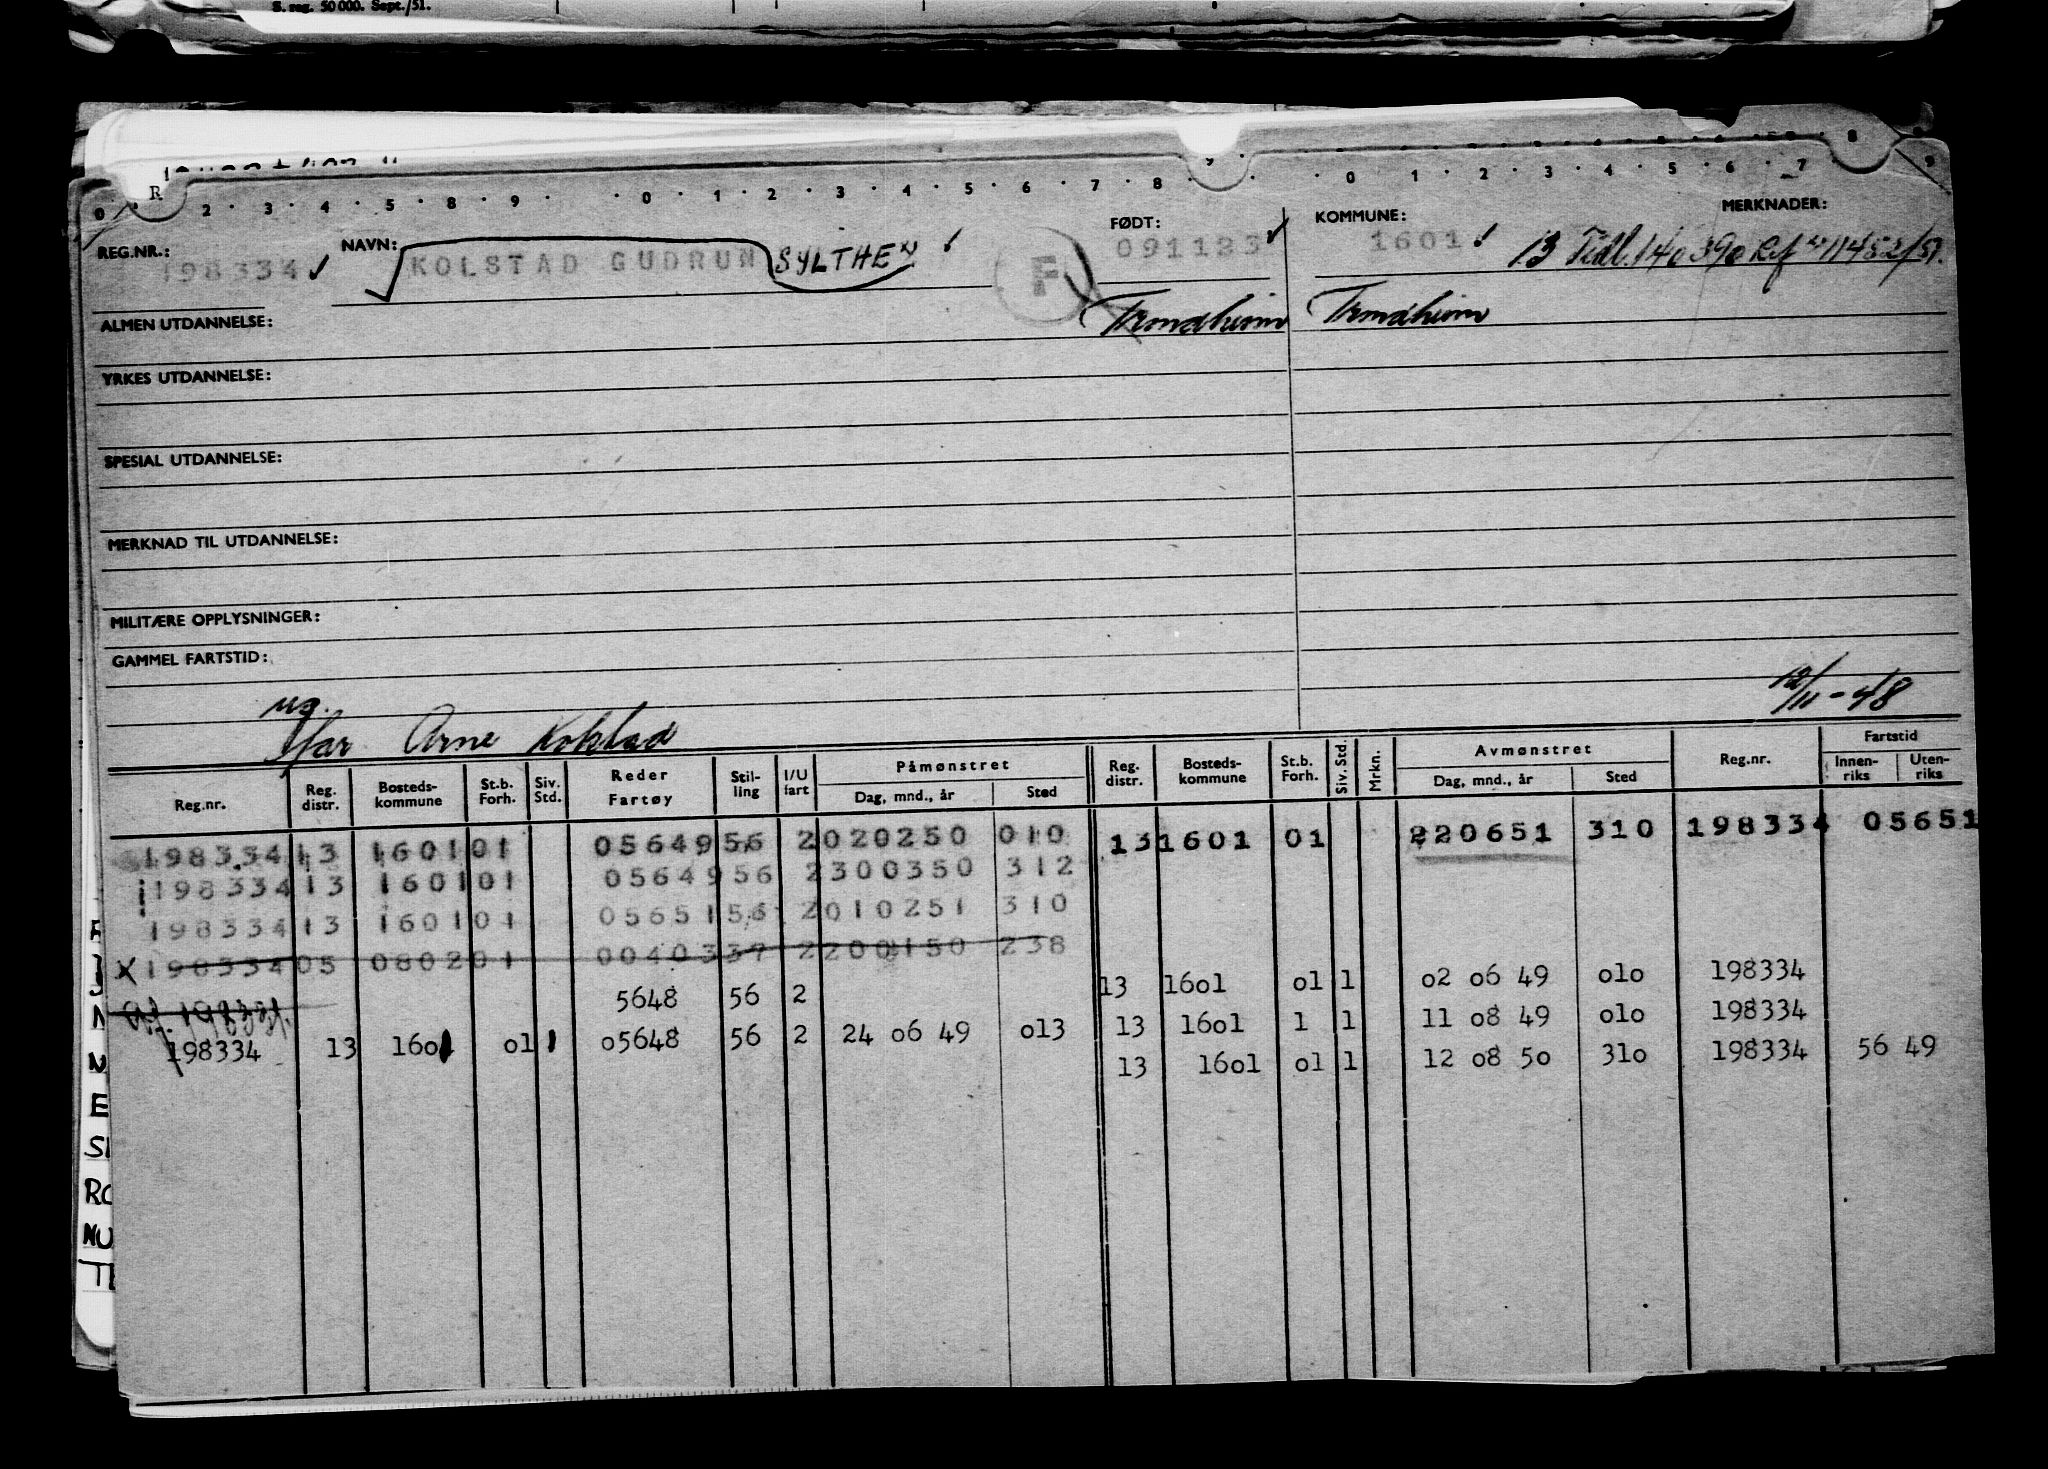 S. reg. 50 000. Sept./51.
R
0 2 · 3 · 4 · 5 · 8 · 9 · · 0 · 1 · 2 · 3 · 4 · 5 · 6 · 7 · 8 · 9 · · 0 · 1 · 2 · 3 · 4 · 5 · 6 · 7 · 8 9
REG.NR.: 198334 NAVN: KOLSTAD GUDRUN SYLTHEN F FØDT: 091123 KOMMUNE: 1601 MERKNADER: 13 Tidl. 140390 Ref 11452/51.
ALMEN UTDANNELSE: Trondheim Trondheim
YRKES UTDANNELSE:
SPESIAL UTDANNELSE:
MERKNAD TIL UTDANNELSE:
MILITÆRE OPPLYSNINGER:
GAMMEL FARTSTID:
ug. 12/11-48
Far Arne Kolstad
Reg.nr. Reg. distr. Bosteds-kommune St.b. Forh. Siv. Std. Reder Fartøy Stil-ling I/U fart Påmønstret Dag, mnd., år Sted Reg. distr. Bosteds-kommune St.b. Forh. Siv. Std. Mrkn. Avmønstret Dag, mnd., år Sted Reg.nr. Fartstid Innen-riks Uten-riks
198334 13 1601 01 05649 56 2 020250 010 13 1601 01 220651 310 198334 05651
198334 13 1601 01 05649 56 2 300350 312
198334 13 1601 01 05651 56 2 010251 310
X 198334 05 0802 01 00403 37 2 200150 238
198334 5648 56 2 13 16o1 o1 1 o2 o6 49 o1o 198334
198334 13 16o1 o1 1 o5648 56 2 24 o6 49 o13 13 16o1 1 1 11 o8 49 o1o 198334
13 16o1 o1 1 12 o8 5o 31o 198334 56 49
N
E
RO
NU